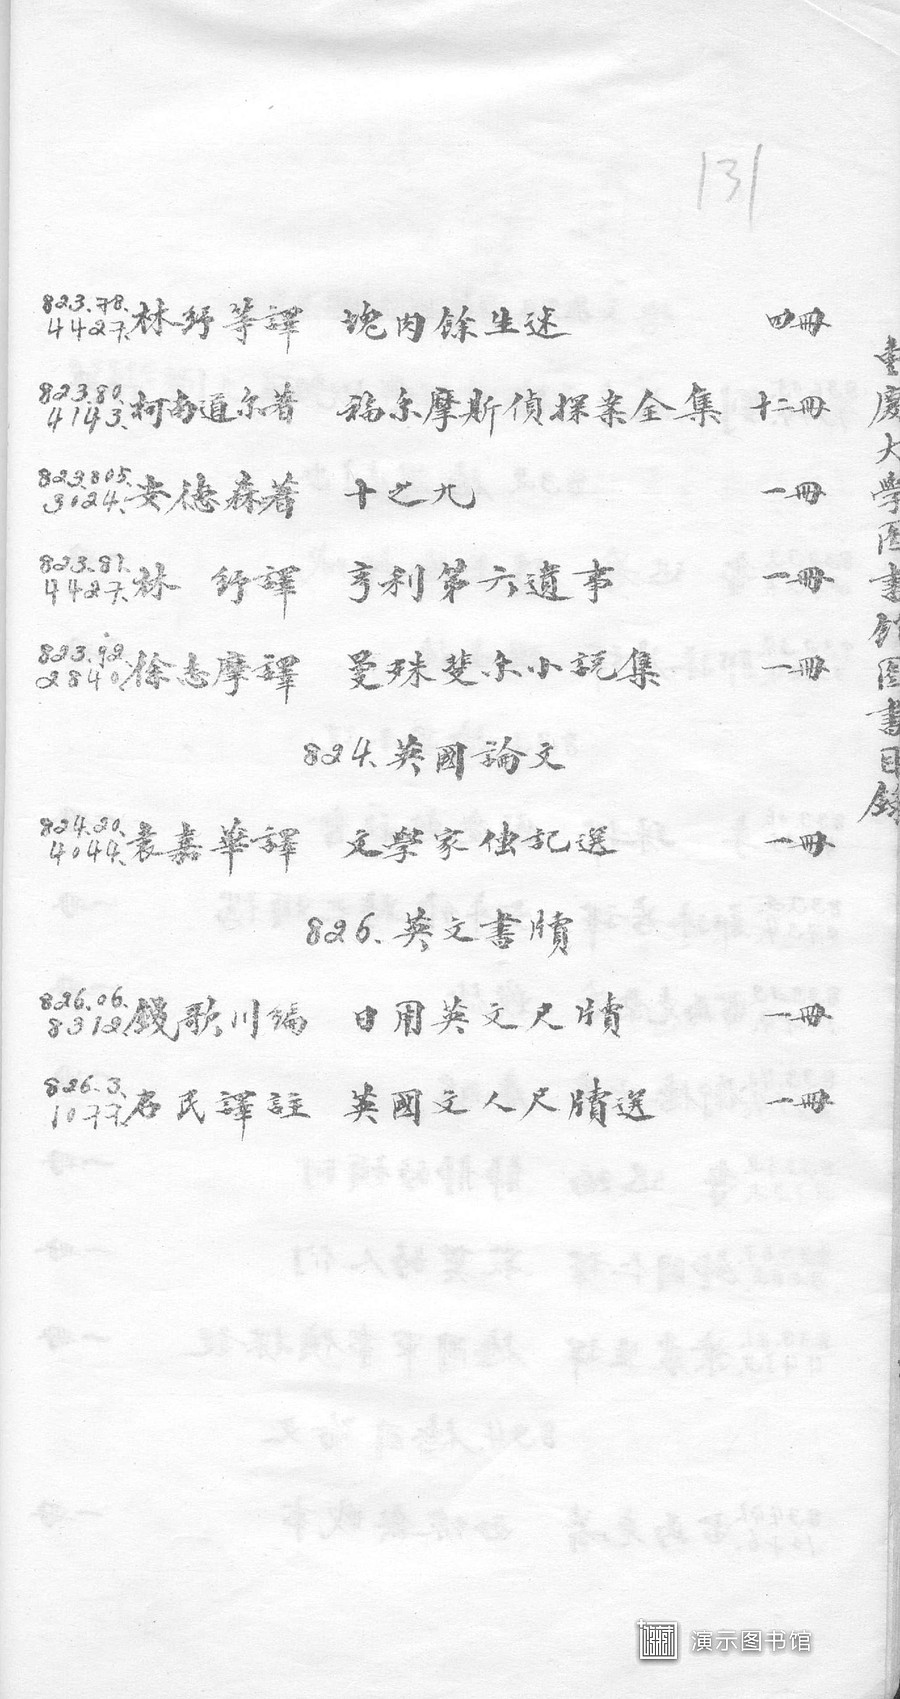 131
823.78.
4427. 林紓等譯 塊肉餘生述 四冊
823.80.
4143. 柯南道尔著 福尔摩斯偵探案全集 十二冊
823.805.
3024. 安德森著 十之九 一冊
823.81.
4427. 林紓譯 亨利第六遺事 一冊
823.92.
2840. 徐志摩譯 曼殊斐尔小説集 一冊
824. 英國論文
824.20.
4044. 袁嘉華譯 文學家傳記選 一冊
826. 英文書牘
826.06.
8312. 錢歌川編 日用英文尺牘 一冊
826.3.
1077. 石民譯註 英國文人尺牘選 一冊
重慶大學圖書館圖書目錄
演示图书馆